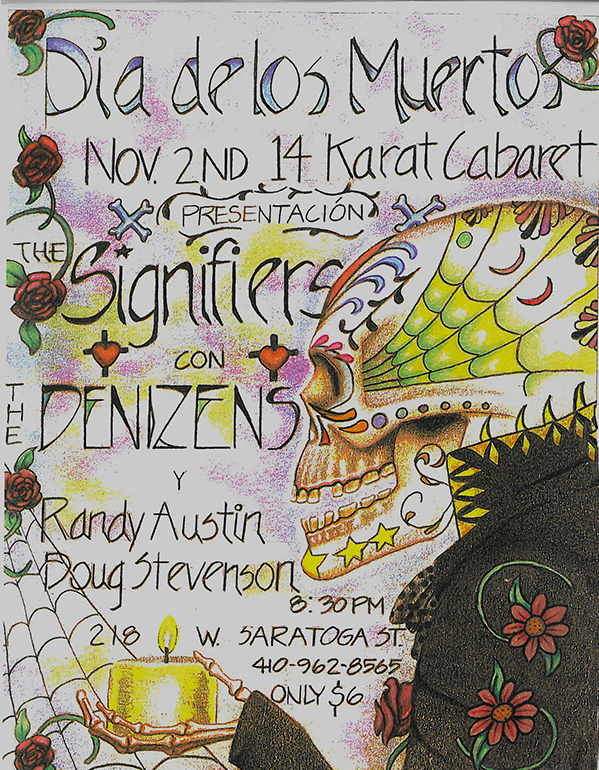 Dia de los Muertos
NOV. 2ND 14 Karat Cabaret
PRESENTACIÓN
THE Signifiers
CON
THE DENIZENS
Y
Randy Austin
Doug Stevenson
8:30 PM
218 W. SARATOGA ST.
410-962-8565
ONLY $6